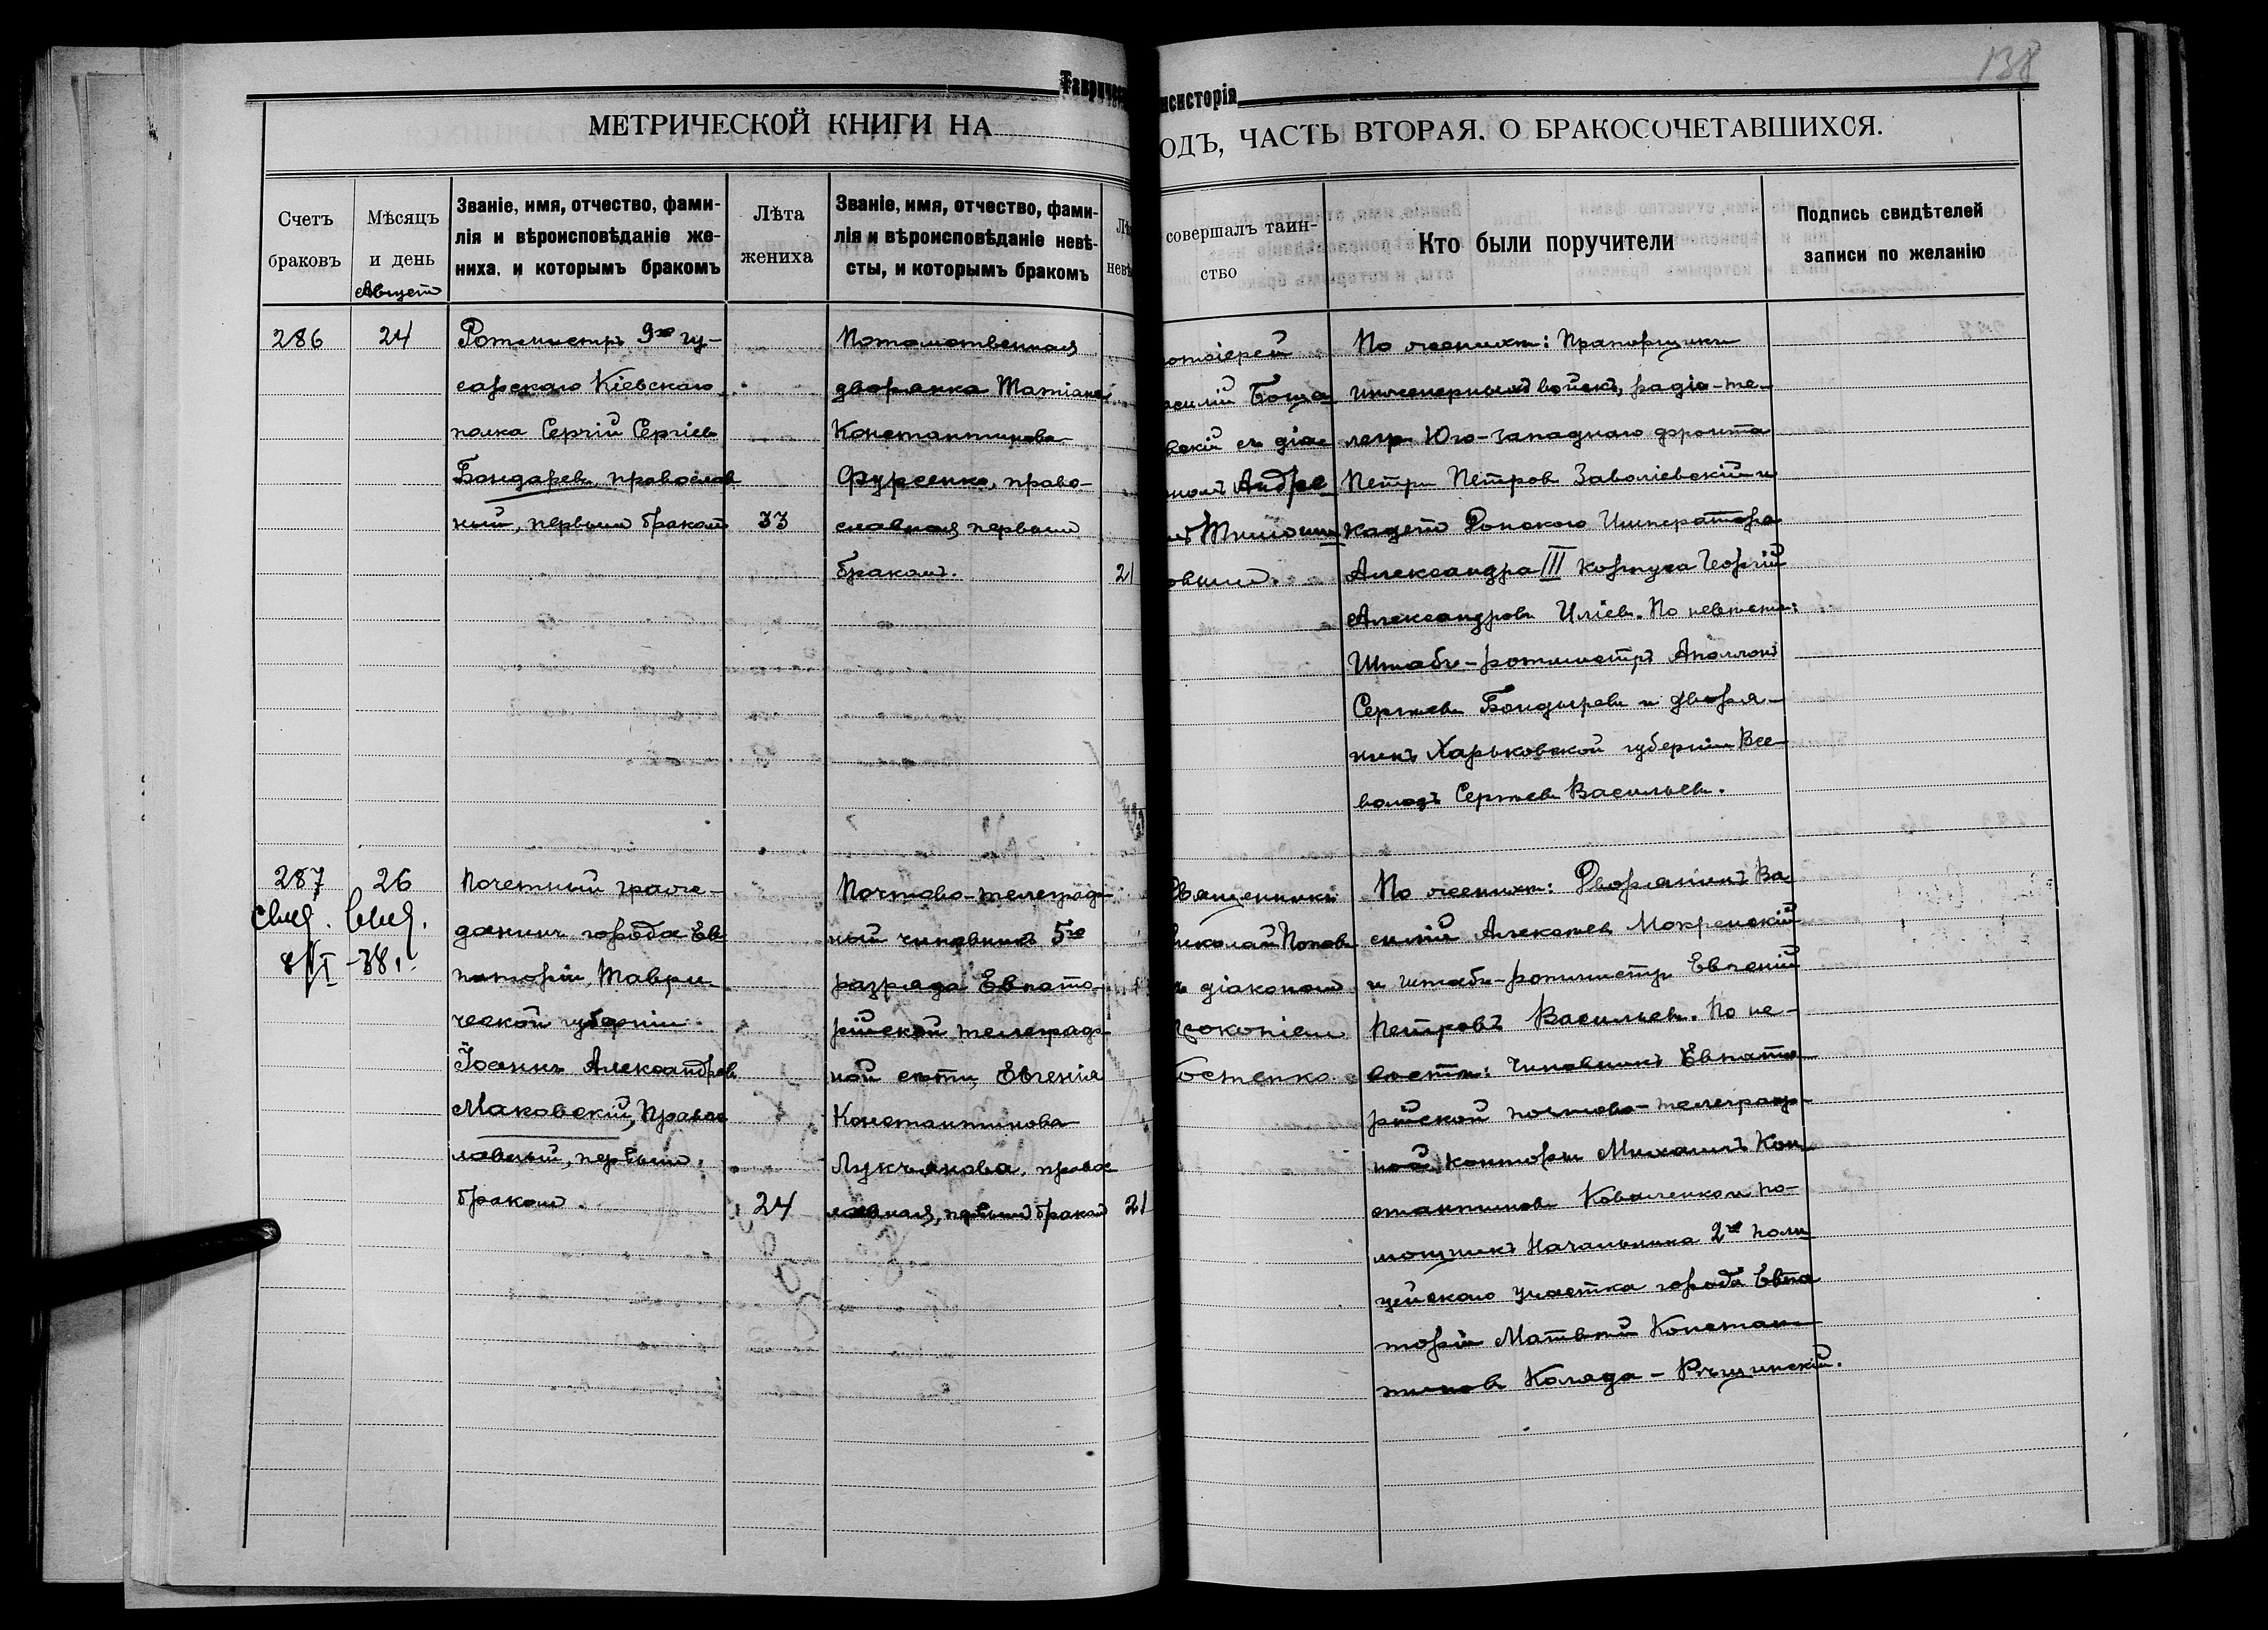 138
Тавричес
нсисторія
МЕТРИЧЕСКОЙ КНИГИ НА
ОДЪ, ЧАСТЬ ВТОРАЯ. О БРАКОСОЧЕТАВШИХСЯ.
Счетъ
браковъ
Мѣсяцъ
и день
Августъ
Званіе, имя, отчество, фами-
лія и вѣроисповѣданіе же-
ниха, и которымъ бракомъ
Лѣта
жениха
Званіе, имя, отчество, фами-
лія и вѣроисповѣданіе невѣ-
сты, и которымъ бракомъ
Лѣ
невѣ
совершалъ таин-
ство
Кто были поручители
Подпись свидѣтелей
записи по желанію
286
24
Ротмистръ 9го гу-
сарскаго Кіевскаго
полка Сергій Сергіевъ
Бондаревъ, православ
ный, первымъ бракомъ
33
Потомственная
дворянка Татіана
Константинова
Фурсенко, право-
славная, первымъ
бракомъ.
21
отоіерей
асилій Боща
вскій съ діа
кономъ Андре
емъ Тимоши
овымъ.
По женихѣ: Прапорщикъ
инженерныхъ войскъ, радіо-те-
легр. Юго-западнаго фронта
Петръ Петровъ Заболіевскій и
кадетъ Донского Императора
Александра III корпуса Георгій
Александровъ Иліевъ. По невѣстѣ:
Штабъ-ротмистръ Аполлонъ
Сергѣевъ Бондыревъ и дворя-
нинъ Харьковской губерніи Все-
володъ Сергѣевъ Васильевъ.
287
26
свид. выд.
8/I -38 г.
Почетный граж-
данинъ города Ев
паторіи, Таври-
ческой губерніи
Іоаннъ Александровъ
Маковскій, Правос
лавный, первымъ
бракомъ.
24
Почтово-телеграф-
ный чиновникъ 5го
разряда Евпато-
рійской телеграф-
ной сѣти, Евгенія
Константинова
Лукьянова, право
славная, первымъ бракомъ
21
Священникъ
Николай Поповъ
съ діакономъ
Прокопіемъ
Костенко
По женихѣ: Дворянинъ Ва
силій Алексѣевъ Мокренскій
и штабъ-ротмистръ Евгеній
Петровъ Васильевъ. По не-
вѣстѣ: Чиновникъ Евпато-
рійской почтово-телеграф-
ной конторы Михаилъ Кон
стантиновъ Коваленко и по-
мощникъ Начальника 2го поли
цейскаго участка города Евпа
торіи Матвѣй Констан-
тиновъ Коляда-Рѣщинскій.